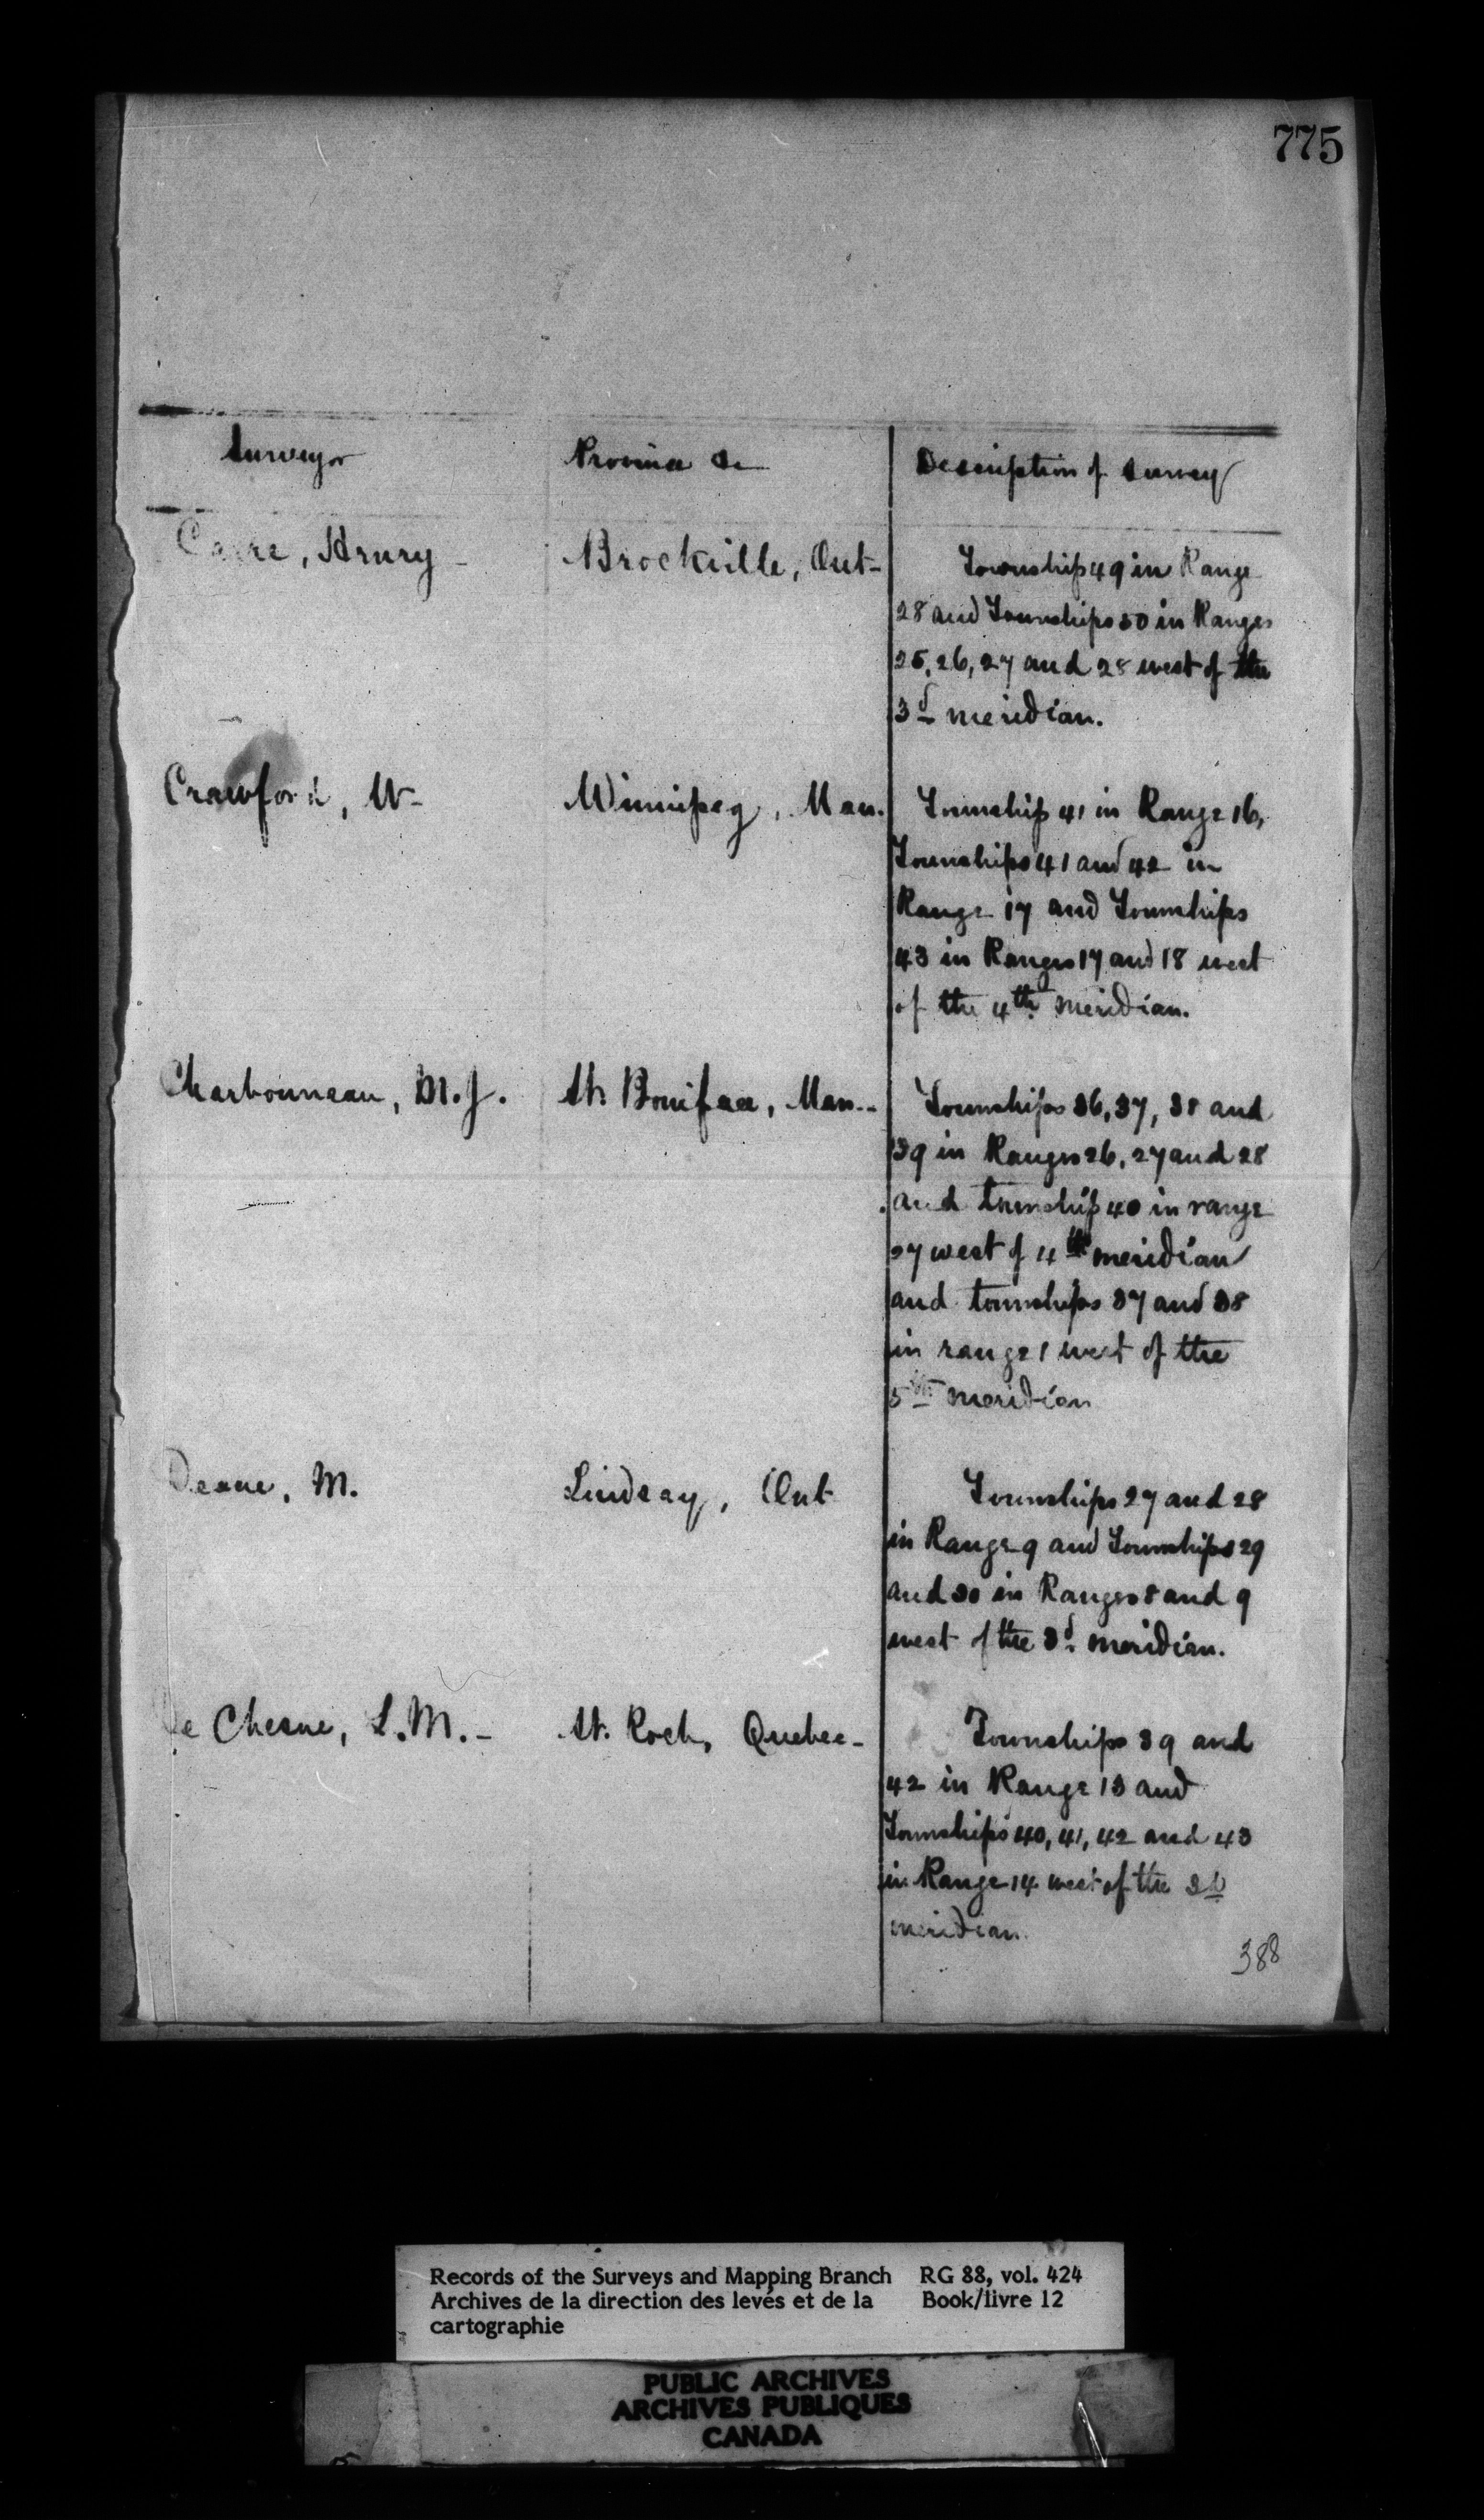 775
Surveyor Province &c Description of Survey
Carre, Henry - Brockville, Ont- Township 49 in Range
28 and Townships 50 in Ranges
25, 26, 27 and 28 west of the
3d meridian.
Crawford, W- Winnipeg, Man. Township 41 in Range 16,
Townships 41 and 42 in
Range 17 and Townships
43 in Ranges 17 and 18 west
of the 4th meridian.
Charbonneau, M.J. St. Boniface, Man-- Townships 36, 37, 38 and
39 in Ranges 26, 27 and 28
and township 40 in range
27 west of 4th meridian
and townships 37 and 38
in range 1 west of the
5th meridian
Deane, M. Lindsay, Ont Townships 27 and 28
in Range 9 and Townships 29
and 30 in Ranges 8 and 9
west of the 3d. meridian.
e Chesne, L.M.- St. Roch, Quebec- Townships 39 and
42 in Range 13 and
Townships 40, 41, 42 and 43
in Range 14 west of the 2d
meridian
388
Records of the Surveys and Mapping Branch RG 88, vol. 424
Archives de la direction des levés et de la Book/livre 12
cartographie
PUBLIC ARCHIVES
ARCHIVES PUBLIQUES
CANADA